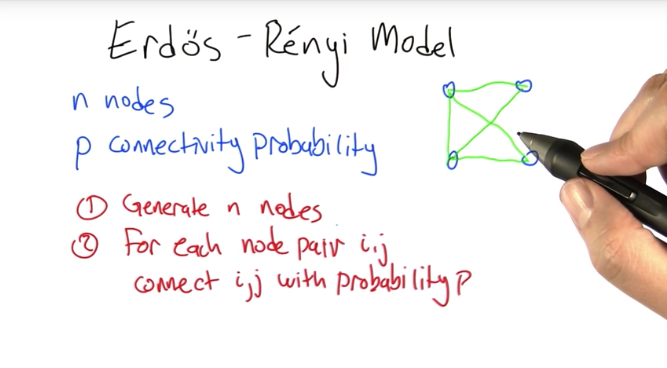 Erdős - Rényi Model
n nodes
p connectivity probability
① Generate n nodes
② For each node pair i,j
connect i,j with probability p